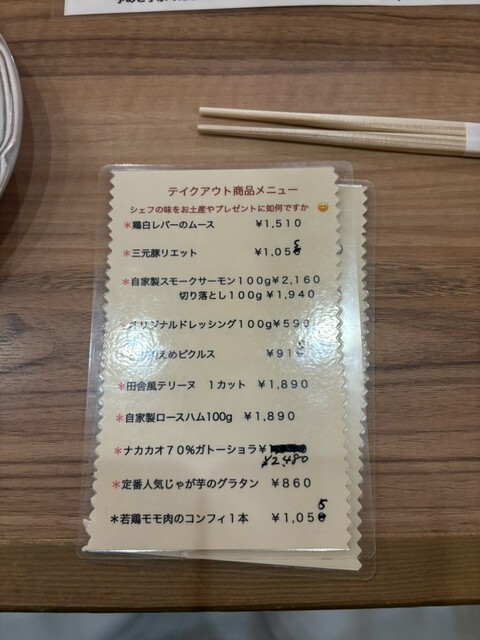 テイクアウト商品メニュー
シェフの味をお土産やプレゼントに如何ですか
*鶏白レバーのムース ¥1,510
*三元豚リエット ¥1,055
*自家製スモークサーモン100g¥2,160
切り落とし100g ¥1,940
*オリジナルドレッシング100g¥590
えめピクルス ¥91
*田舎風テリーヌ 1カット ¥1,890
*自家製ロースハム100g ¥1,890
*ナカカオ70%ガトーショラ¥
¥2,480
*定番人気じゃが芋のグラタン ¥860
*若鶏モモ肉のコンフィ1本 ¥1,055